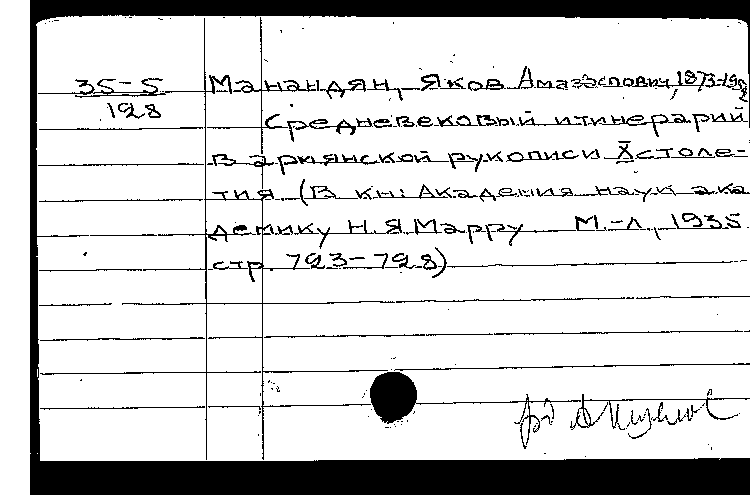 35-5
128
Манандян, Яков Амазаспович, 1873-19
Средневековый итинерарий
в армянской рукописи X столе-
тия (В кн: Академия наук ака
демику Н.Я.Марру М.-Л, 1935
стр. 723-728)